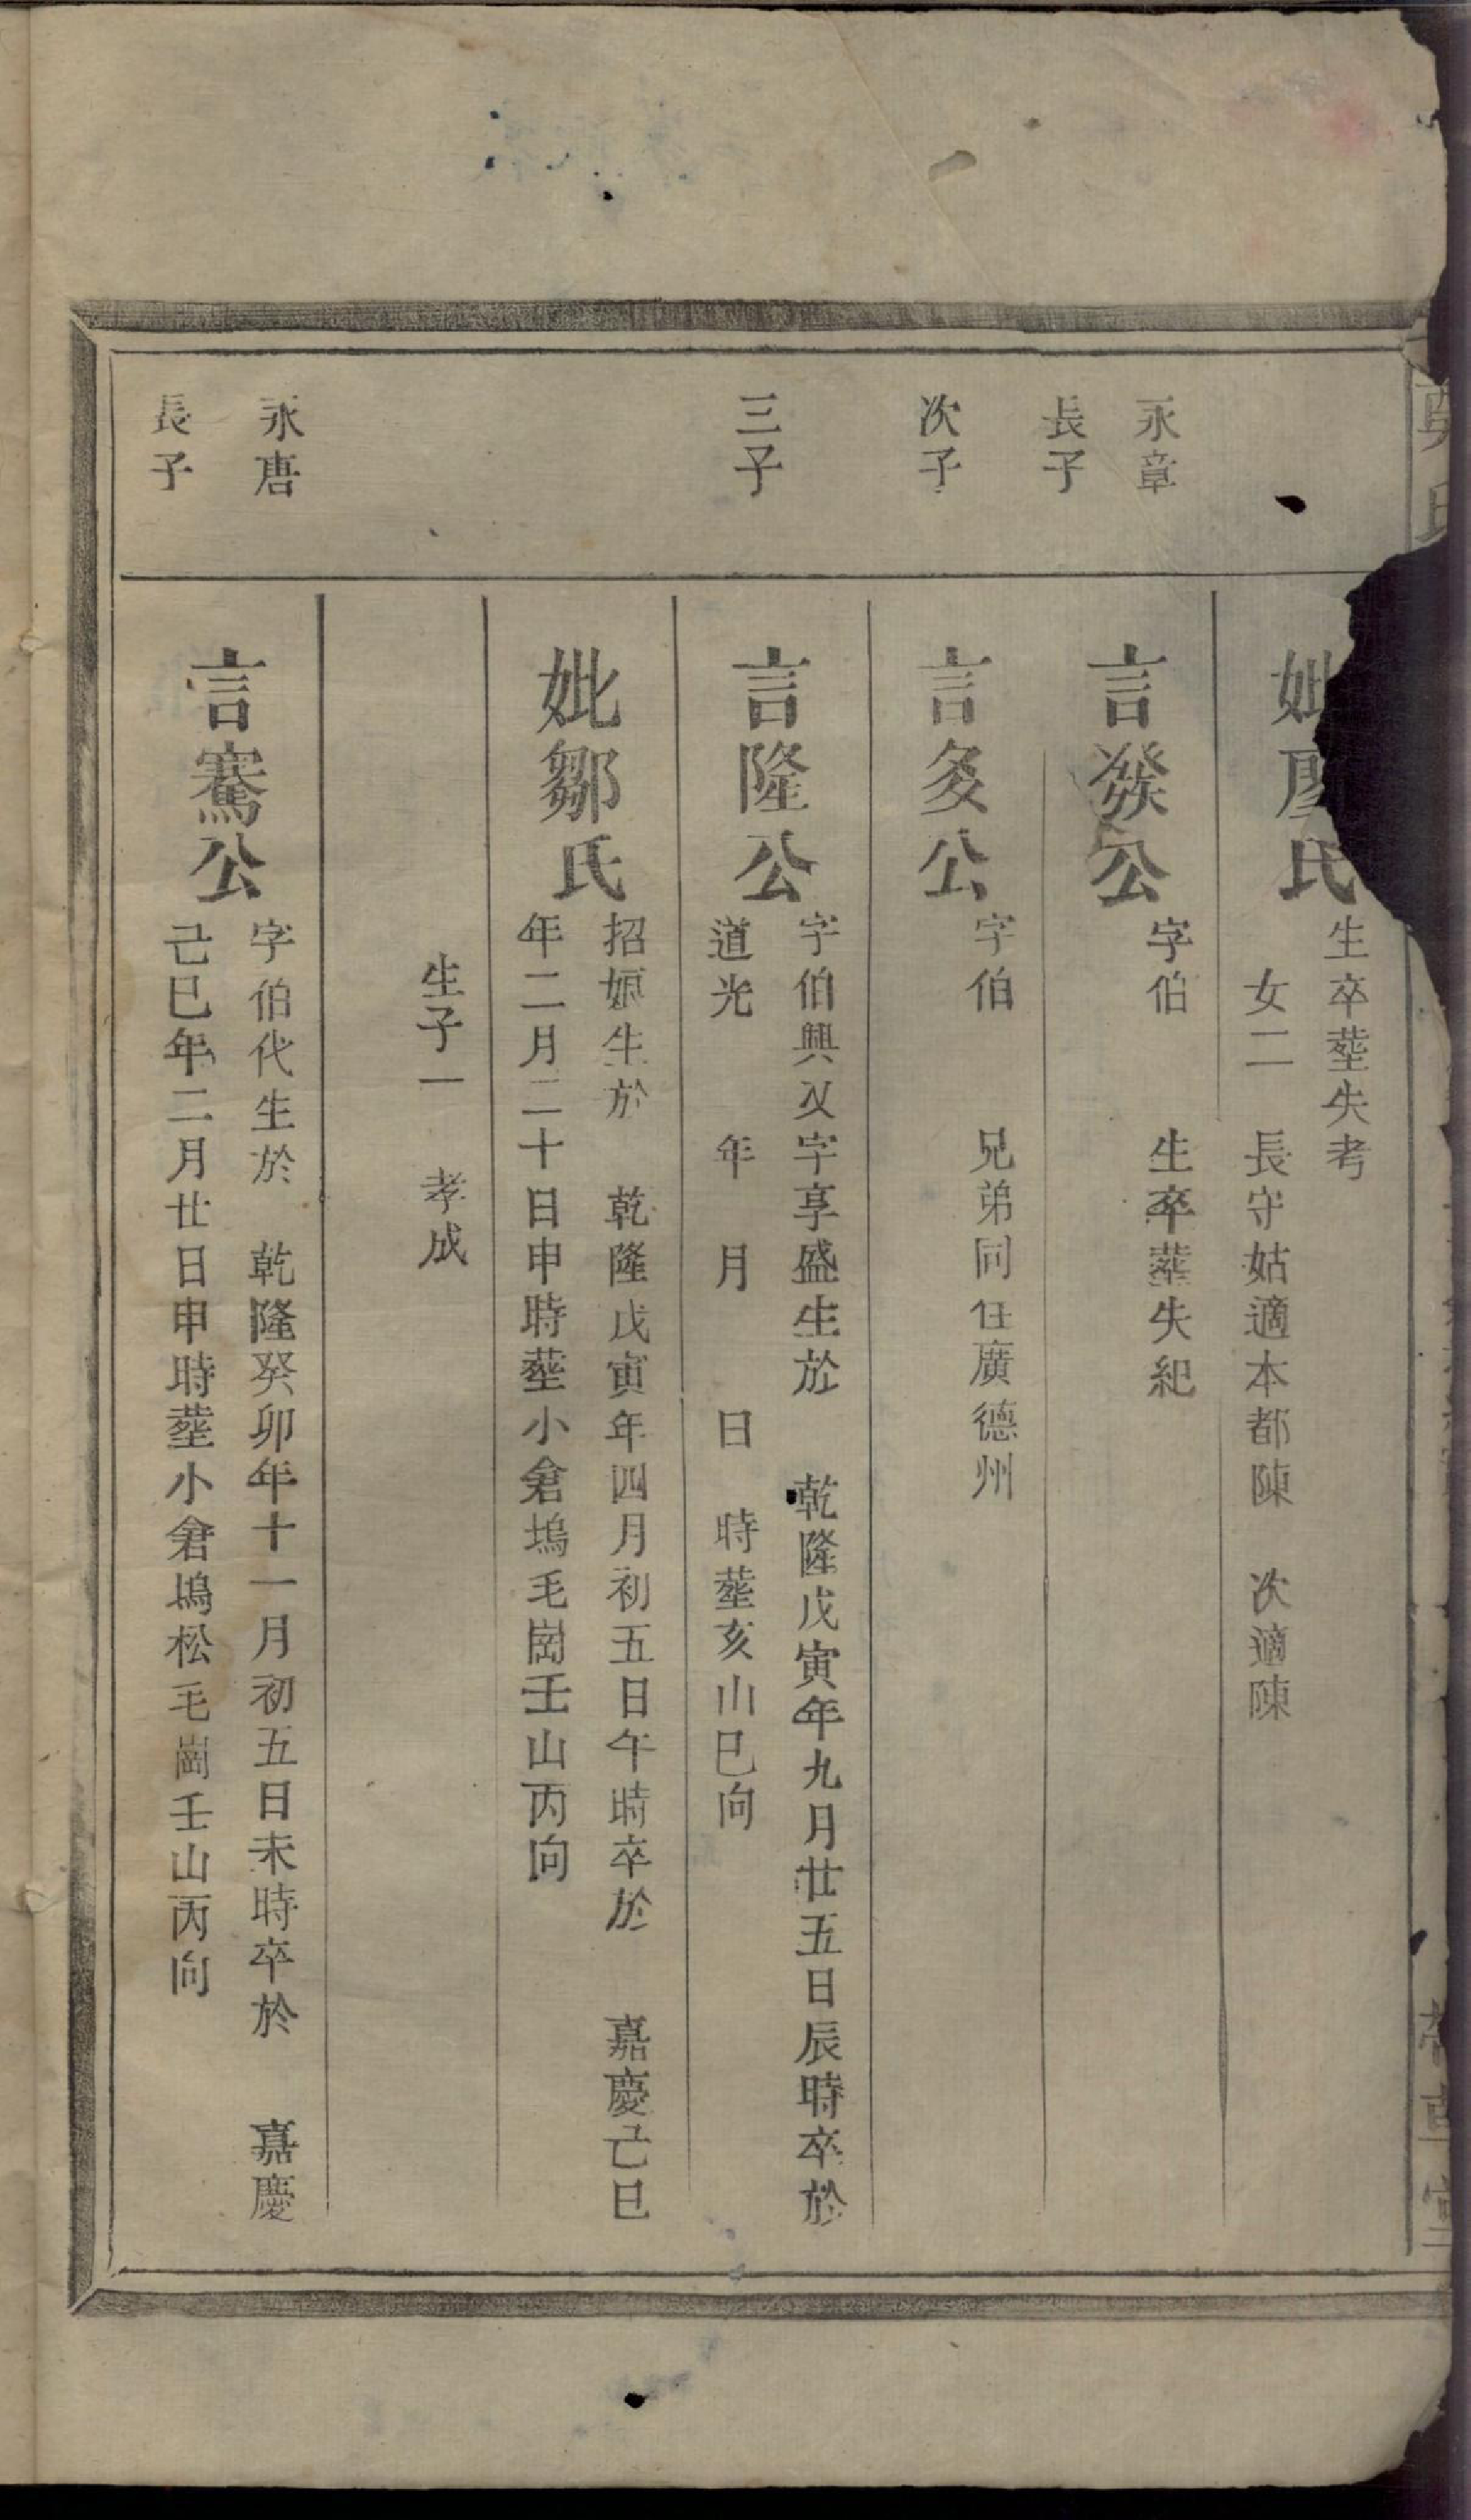 妣廖氏
生卒塟失考
女二　長守姑適本都陳　次適陳
永章
長子
言發公
字伯　　生卒塟失紀
次子
言多公
字伯　　兄弟同住廣德州
三子
言隆公
字伯興又字享盛生於　乾隆戊寅年九月廿五日辰時卒於
道光　　年　月　　日　時塟亥山巳向
妣鄒氏
招娘生於　乾隆戊寅年四月初五日午時卒於　嘉慶己巳
年二月二十日申時塟小倉塢毛崗壬山丙向
生子一　孝成
永唐
長子
言騫公
字伯代生於　乾隆癸卯年十一月初五日未時卒於　嘉慶
己巳年二月廿日申時塟小倉塢松毛崗壬山丙向